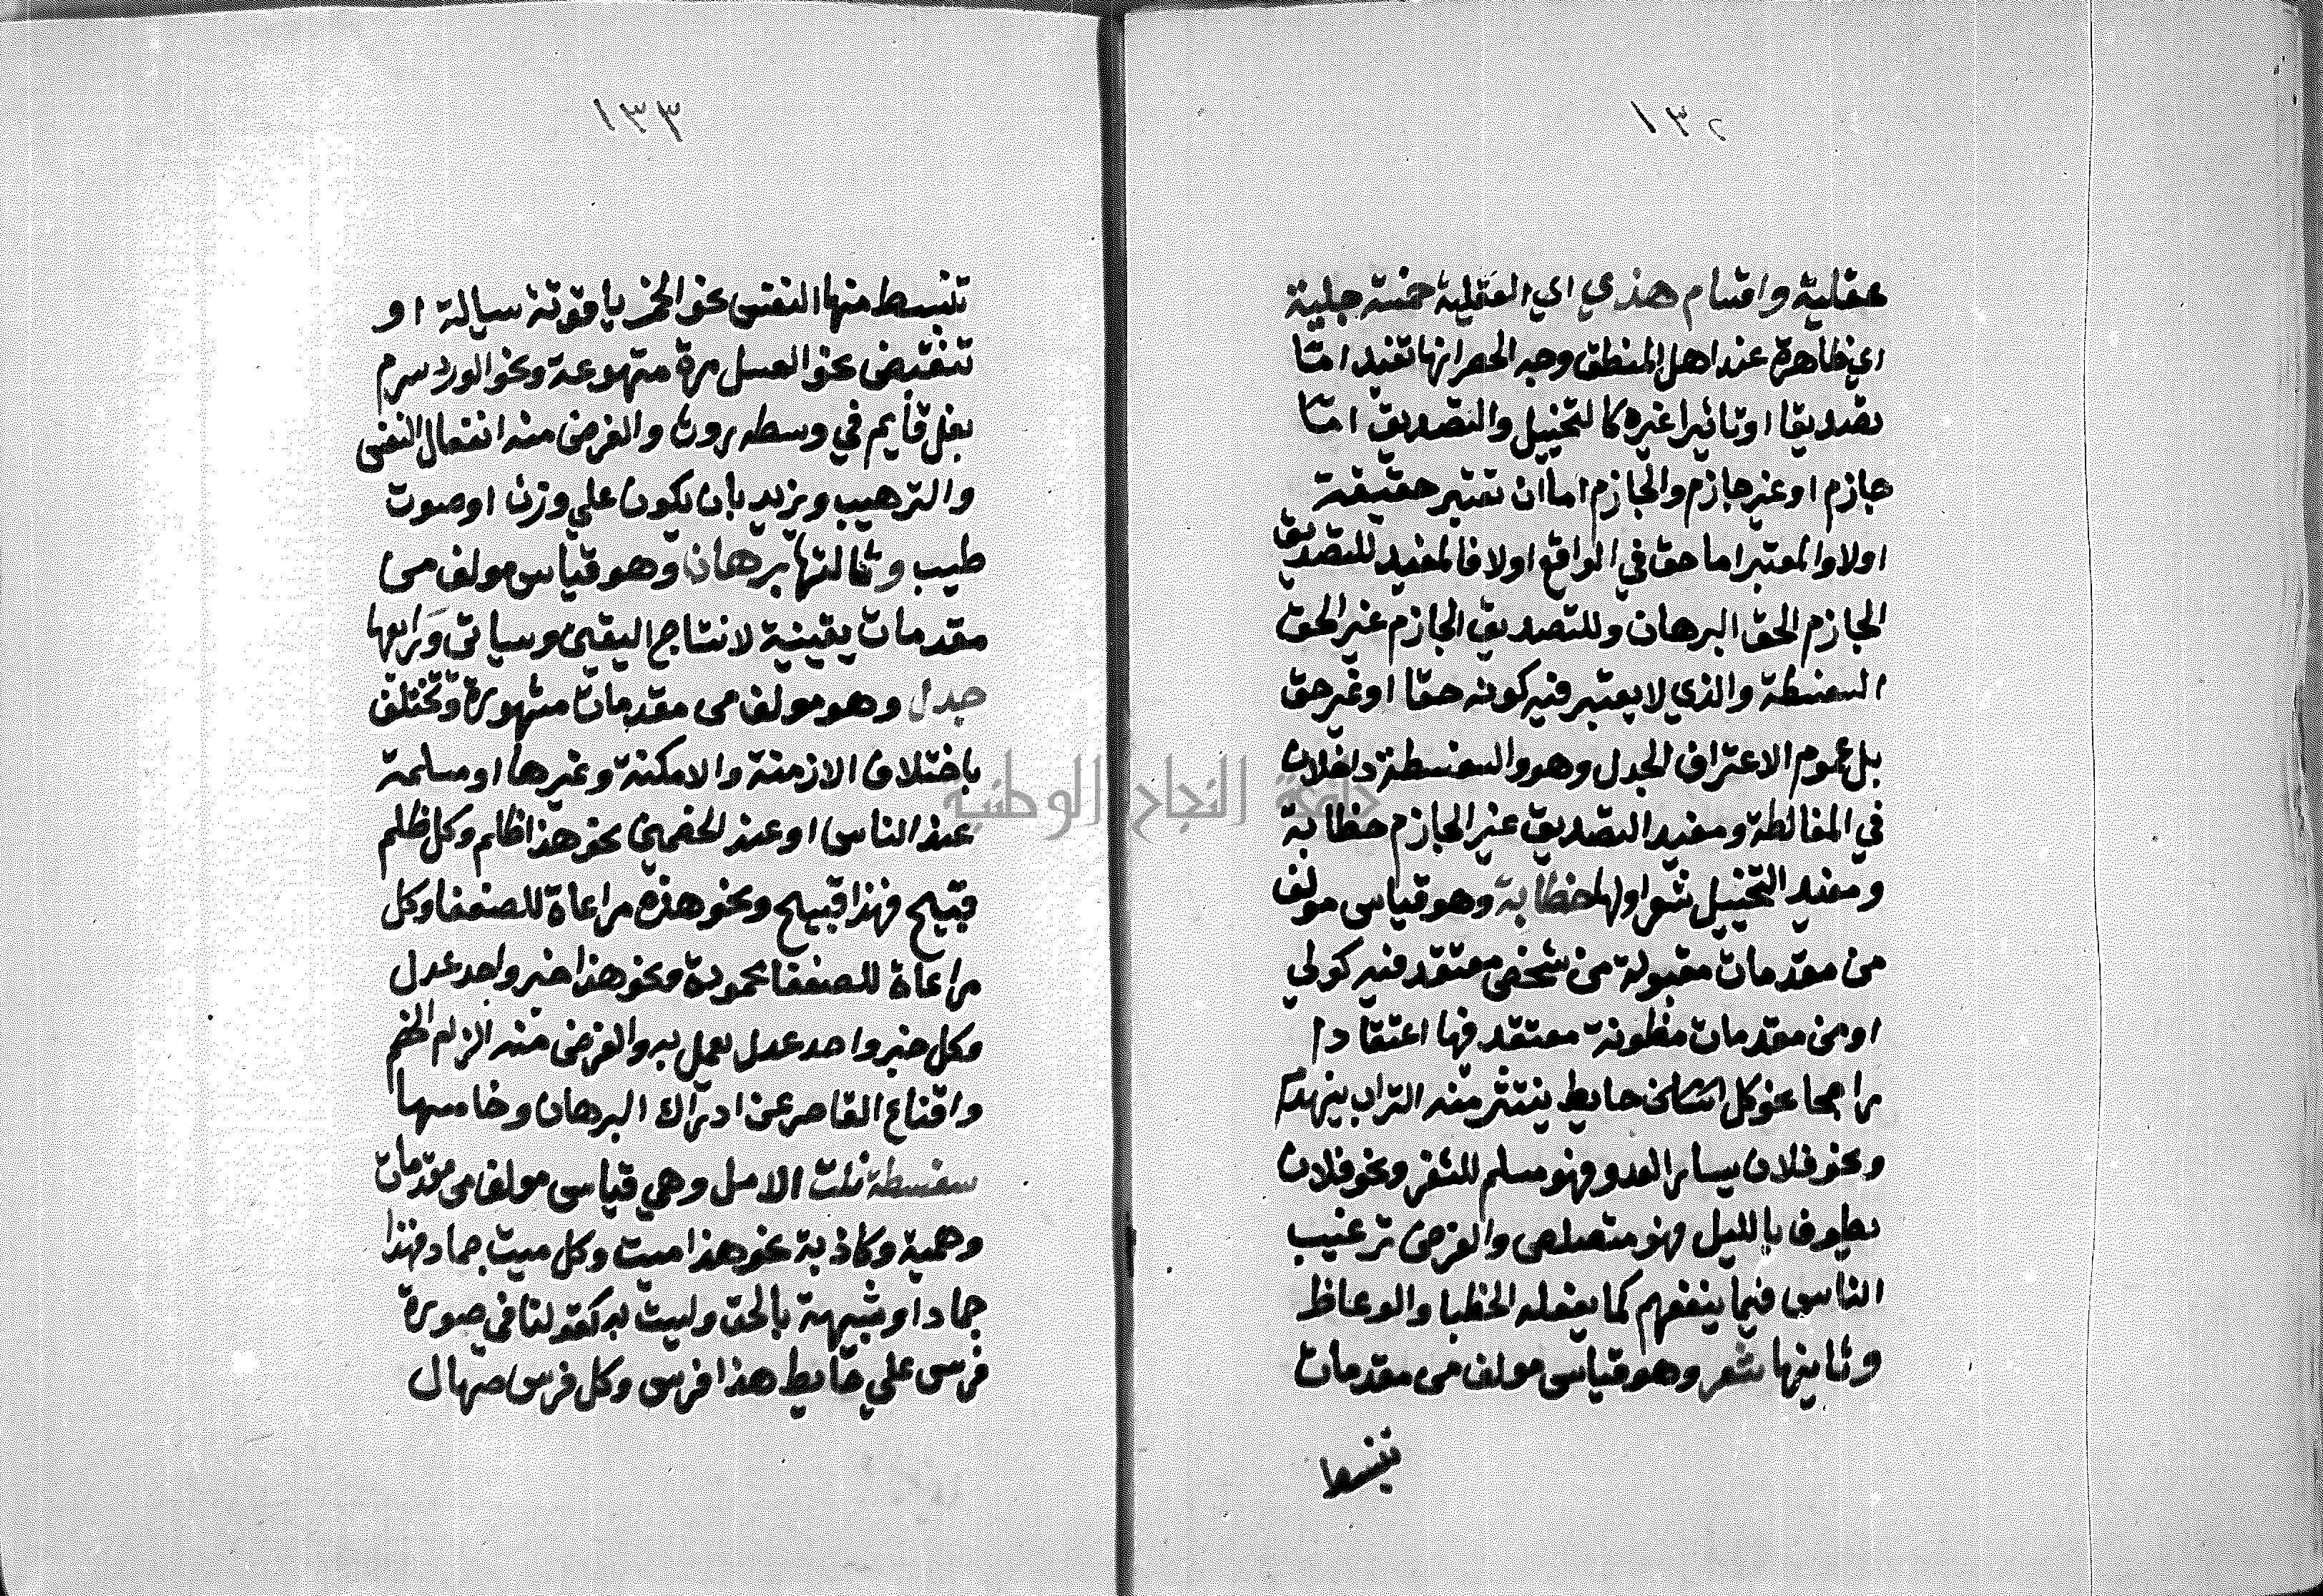 ١٣٢
عقلية واقسام هذي اي العقلية خمسة جلية
اي ظاهرة عند اهل المنطق وجه الحصر انها تفيد امتا
تصديقا او تاثيرا غيره كالتخييل والتصديق امتا
جازم او غير جازم والجازم اما ان تعتبر حقيقة
اولا والمعتبر اما حق في الواقع اولا فالمفيد للتصديق
الجازم الحق البرهان وللتصديق الجازم غير الحق
السفسطة والذي لا يعتبر فيه كونه حقا او غير حق
بل عموم الاعتراف الجدل وهو والسفسطة داخلان
في المغالطة ومفيد التصديق غير الجازم خطابة
ومفيد التخييل شعر اولها خطابة وهو قياس مولف
من مقدمات مقبولة من شخص معتقد فيه كولي
او من مقدمات مظنونة معتقد فها اعتقادا
راجحا نحو كل حايط ينتثر منه التراب ينهدم
ونحو فلان يسار العدو فهو مسلم للثغر ونحو فلان
يطوف بالليل فهو متصلص والغرض ترغيب
الناس فيما ينفعهم كما يفعله الخطبا والوعاظ
وثانيها شعر وهو قياس مولف من مقدمات
تنبسط
١٣٣
تنبسط منها النفس نحو الخمر ياقوتة سيالة او
تنقبض نحو العسل مرة متهوعة ونحو الورد سرم
بغل قايم في وسطه روث والغرض منه انفعال النفس
والترهيب ويزيد بان يكون علي وزن او صوت
طيب وثالثها برهان وهو قياس مولف من
مقدمات يقينية لانتاج اليقين وسياتي ورابعها
جدل وهو مولف من مقدمات مشهورة وتختلف
باختلاف الازمنة والامكنة وغيرها او مسلمة
عند الناس او عند الخصمين نحو هذا ظلم وكل ظلم
قبيح فهذا قبيح ونحو هذه مراعاة للضعفا وكل
مراعاة للضعفا محمودة ونحو هذا خبر واحد عدل
وكل خبر واحد عدل يعمل به والغرض منه الزام الخصم
واقناع القاصر عن ادراك البرهان وخامسها
سفسطة نلت الامل وهي قياس مولف من مقدمات
وهمية وكاذبة نحو هذا ميت وكل ميت جماد فهذا
جماد او شبيهة بالحق وليت به كقولنا في صورة
فرس علي حايط هذا فرس وكل فرس صهال
جامعة النجاح الوطنية